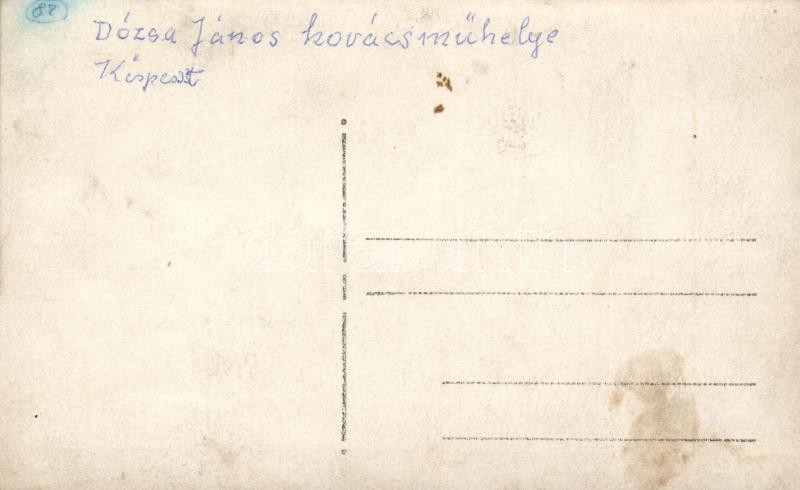 87
Dózsa János kovácsműhelye
Kispest